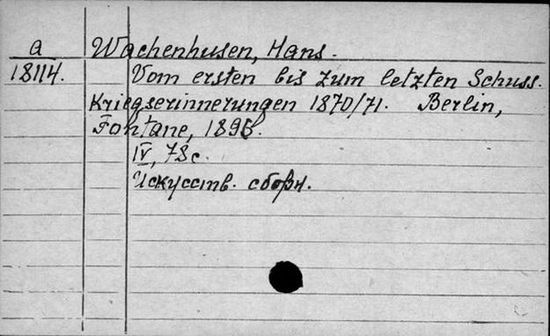 a Wachenhusen, Hans.
18114. Vom ersten bis zum letzten Schuss.
Kriegserinnerungen 1870/71. Berlin,
Fontane, 1898.
IV, 78 с.
Искусств. сборн.